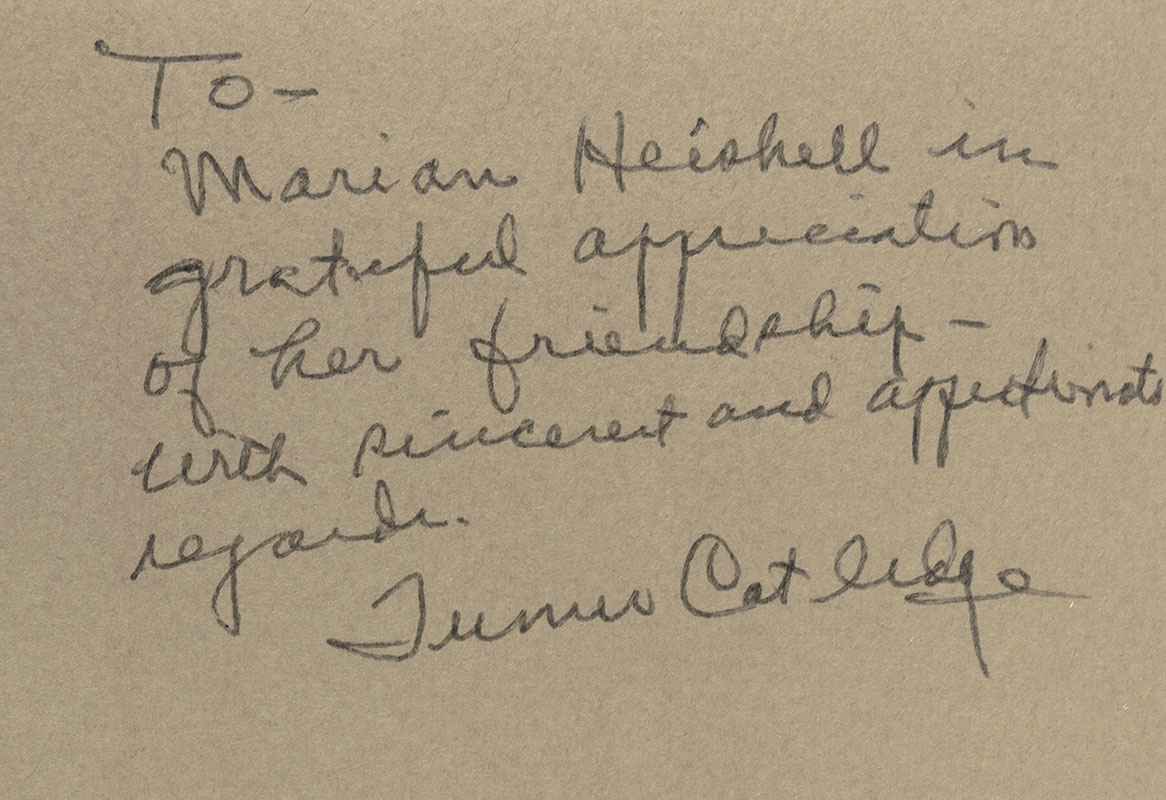 To-
Marian Heishell in
grateful appreciation
of her friendship -
with sincerest and affectionate
regards.
Turner Catledge